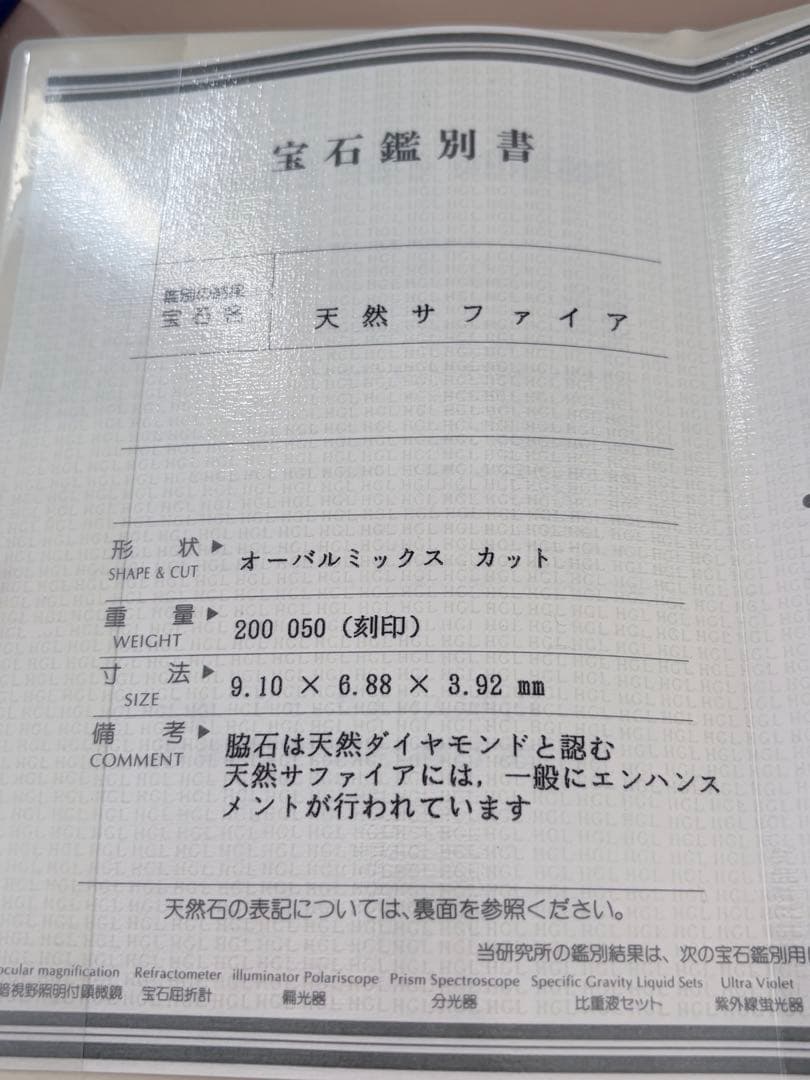 宝石鑑別書
鑑別の結果
宝石名
天然サファイア
形 状 ▶ オーバルミックス カット
SHAPE & CUT
重 量 ▶ 200 050 (刻印)
WEIGHT
寸 法 ▶ 9.10 × 6.88 × 3.92 mm
SIZE
備 考 ▶ 脇石は天然ダイヤモンドと認む
COMMENT
天然サファイアには，一般にエンハンス
メントが行われています
天然石の表記については、裏面を参照ください。
当研究所の鑑別結果は、次の宝石鑑別用
ocular magnification Refractometer illuminator Polariscope Prism Spectroscope Specific Gravity Liquid Sets Ultra Violet
暗視野照明付顕微鏡 宝石屈折計 偏光器 分光器 比重液セット 紫外線蛍光器